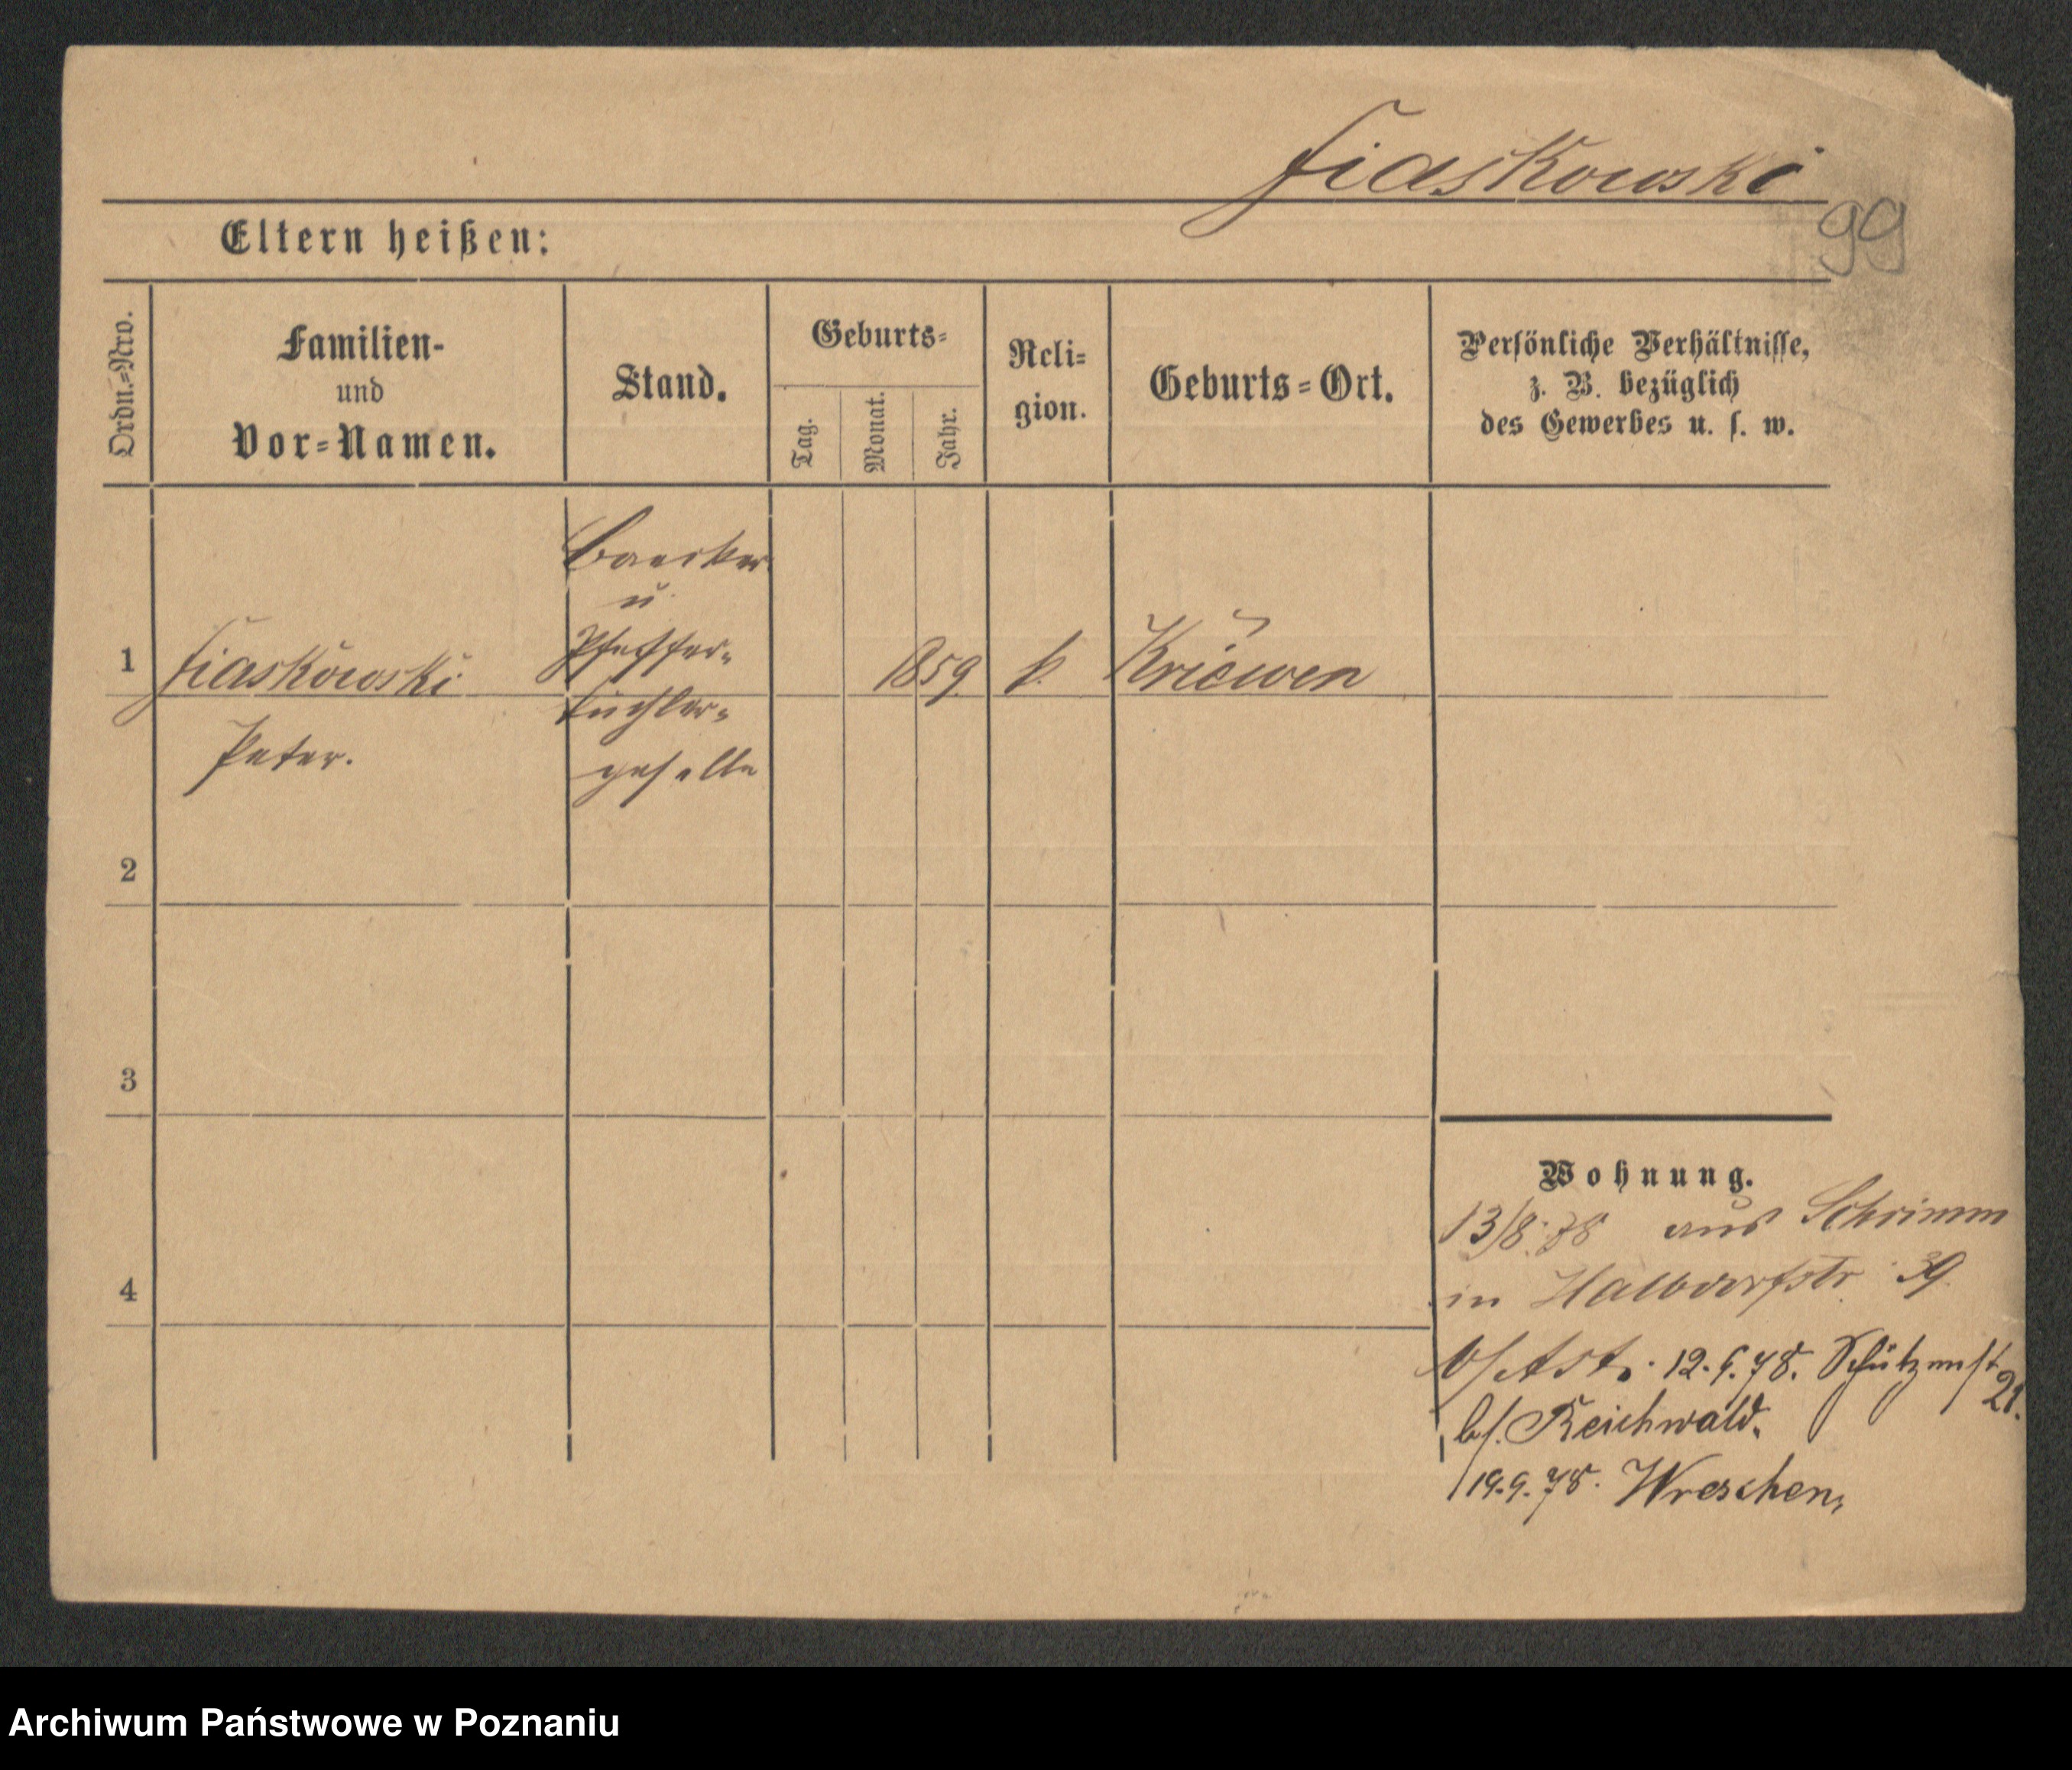 Fiaskowski
99
Eltern heißen:
Ordn.=Nro.
Familien-
und
Vor=Namen.
Stand.
Geburts=
Tag.
Monat.
Jahr.
Reli=
gion.
Geburts=Ort.
Persönliche Verhältnisse,
z. B. bezüglich
des Gewerbes u. s. w.
1
Fiaskowski
Peter.
Baecker
u
Pfeffer=
küchler=
geselle
1859
k.
Kriewen
2
3
4
Wohnung.
13/8. 78 aus Schrimm
in Halbdorfstr 39.
12.9.78. Schützenst
21.
b/. Reichwald.
19.9.78. Wreschen,
Archiwum Państwowe w Poznaniu